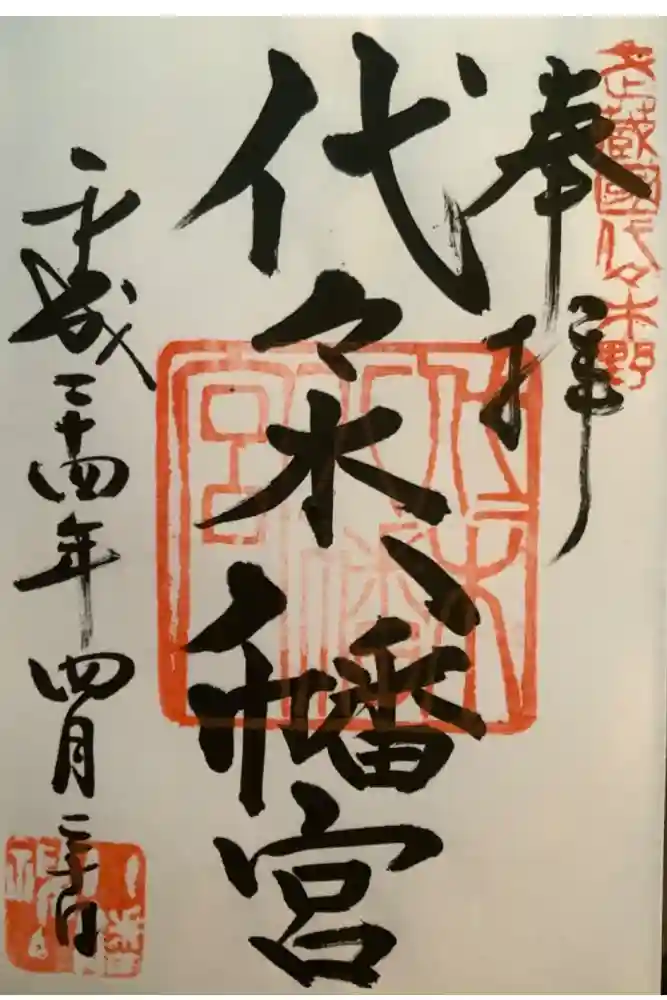 武蔵國代々木野
奉拝
代々木八幡宮
代々木八幡宮
平成二十四年四月二十日